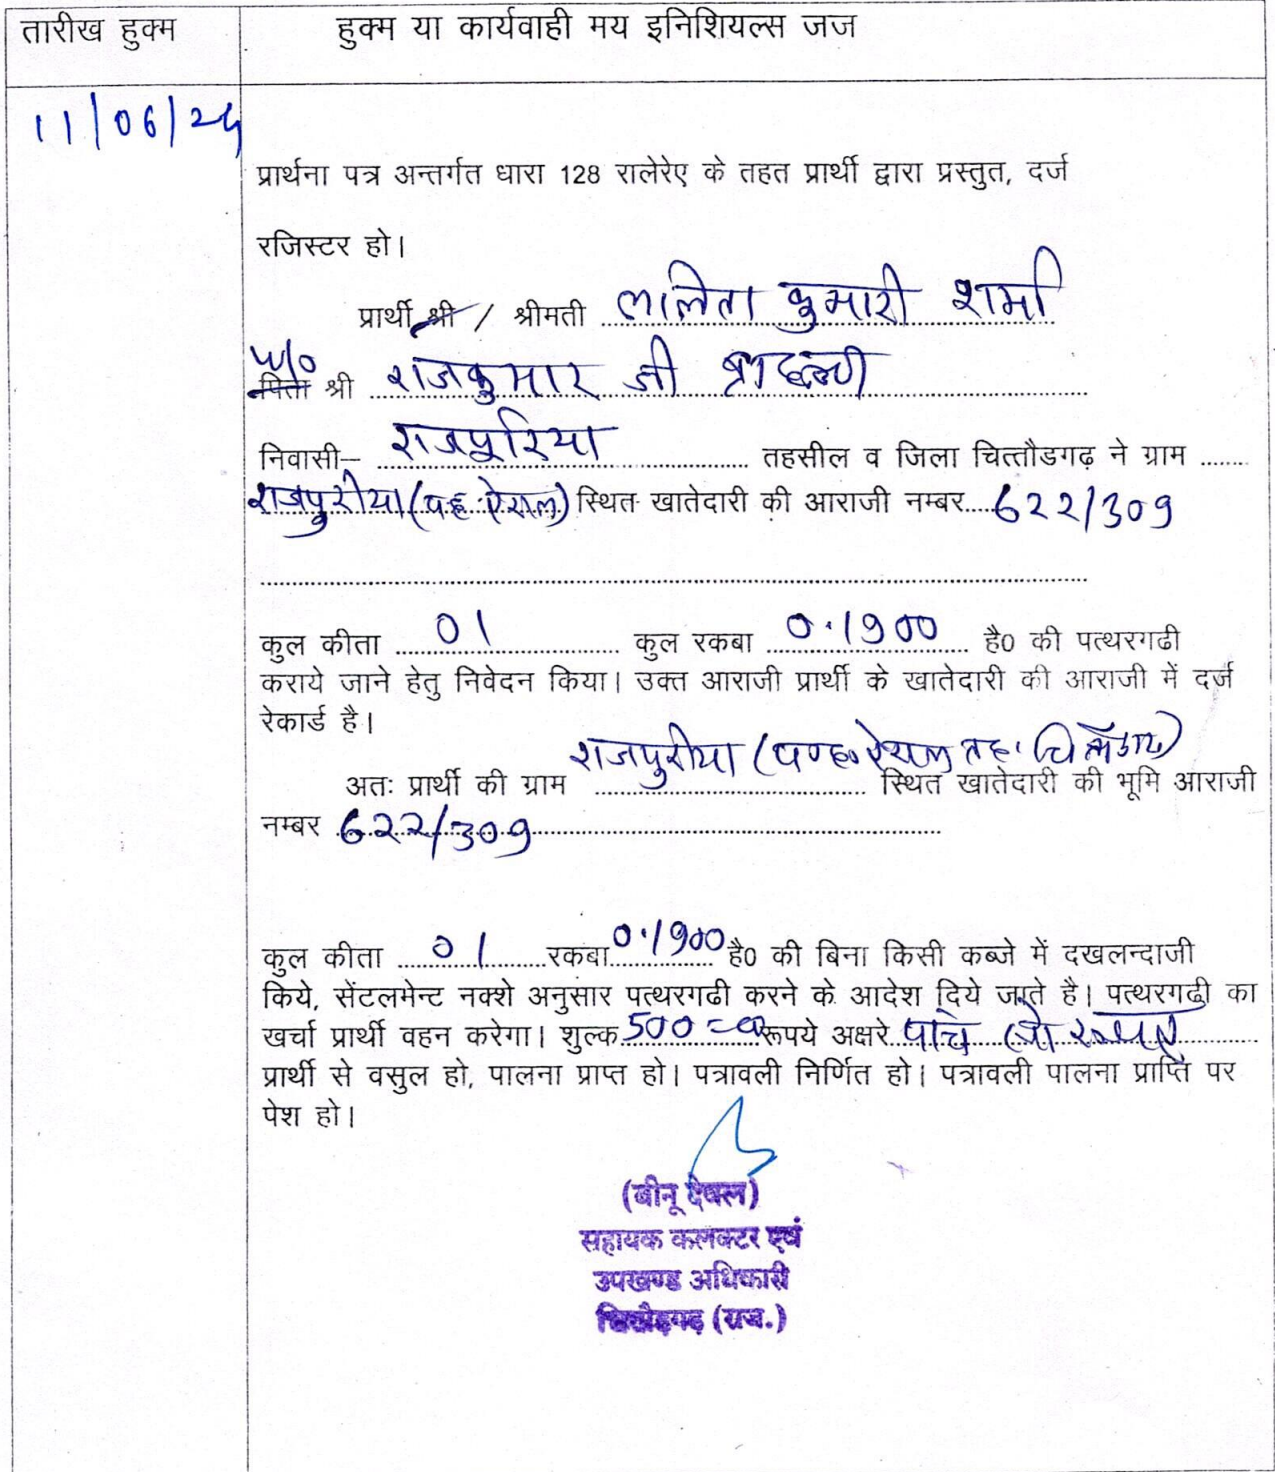 तारीख हुक्म
हुक्म या कार्यवाही मय इनिशियल्स जज
11/06/24
प्रार्थना पत्र अन्तर्गत धारा 128 रालेरेए के तहत प्रार्थी द्वारा प्रस्तुत, दर्ज
रजिस्टर हो।
प्रार्थी श्री / श्रीमती ललिता कुमारी शर्मा
w/o
पिता श्री राजकुमार जी ब्राह्मण
निवासी– राजपुरिया तहसील व जिला चित्तौडगढ़ ने ग्राम ........
राजपुरीया (प.ह. ऐराल) स्थित खातेदारी की आराजी नम्बर....622/309
कुल कीता 01 कुल रकबा 0.1900 है0 की पत्थरगढी
कराये जाने हेतु निवेदन किया। उक्त आराजी प्रार्थी के खातेदारी की आराजी में दर्ज
रेकार्ड है।
राजपुरीया (प०ह० ऐराल तह. चित्तौडगढ)
अतः प्रार्थी की ग्राम .............................. स्थित खातेदारी की भूमि आराजी
नम्बर 622/309
कुल कीता 01 रकबा 0.1900 है0 की बिना किसी कब्जे में दखलन्दाजी
किये, सेंटलमेन्ट नक्शे अनुसार पत्थरगढी करने के आदेश दिये जाते है। पत्थरगढी का
खर्चा प्रार्थी वहन करेगा। शुल्क 500=00 रूपये अक्षरे पांच सो रूपए
प्रार्थी से वसुल हो, पालना प्राप्त हो। पत्रावली निर्णित हो। पत्रावली पालना प्राप्ति पर
पेश हो।
(बीनू देवल)
सहायक कलक्टर एवं
उपखण्ड अधिकारी
चित्तौड़गढ़ (राज.)